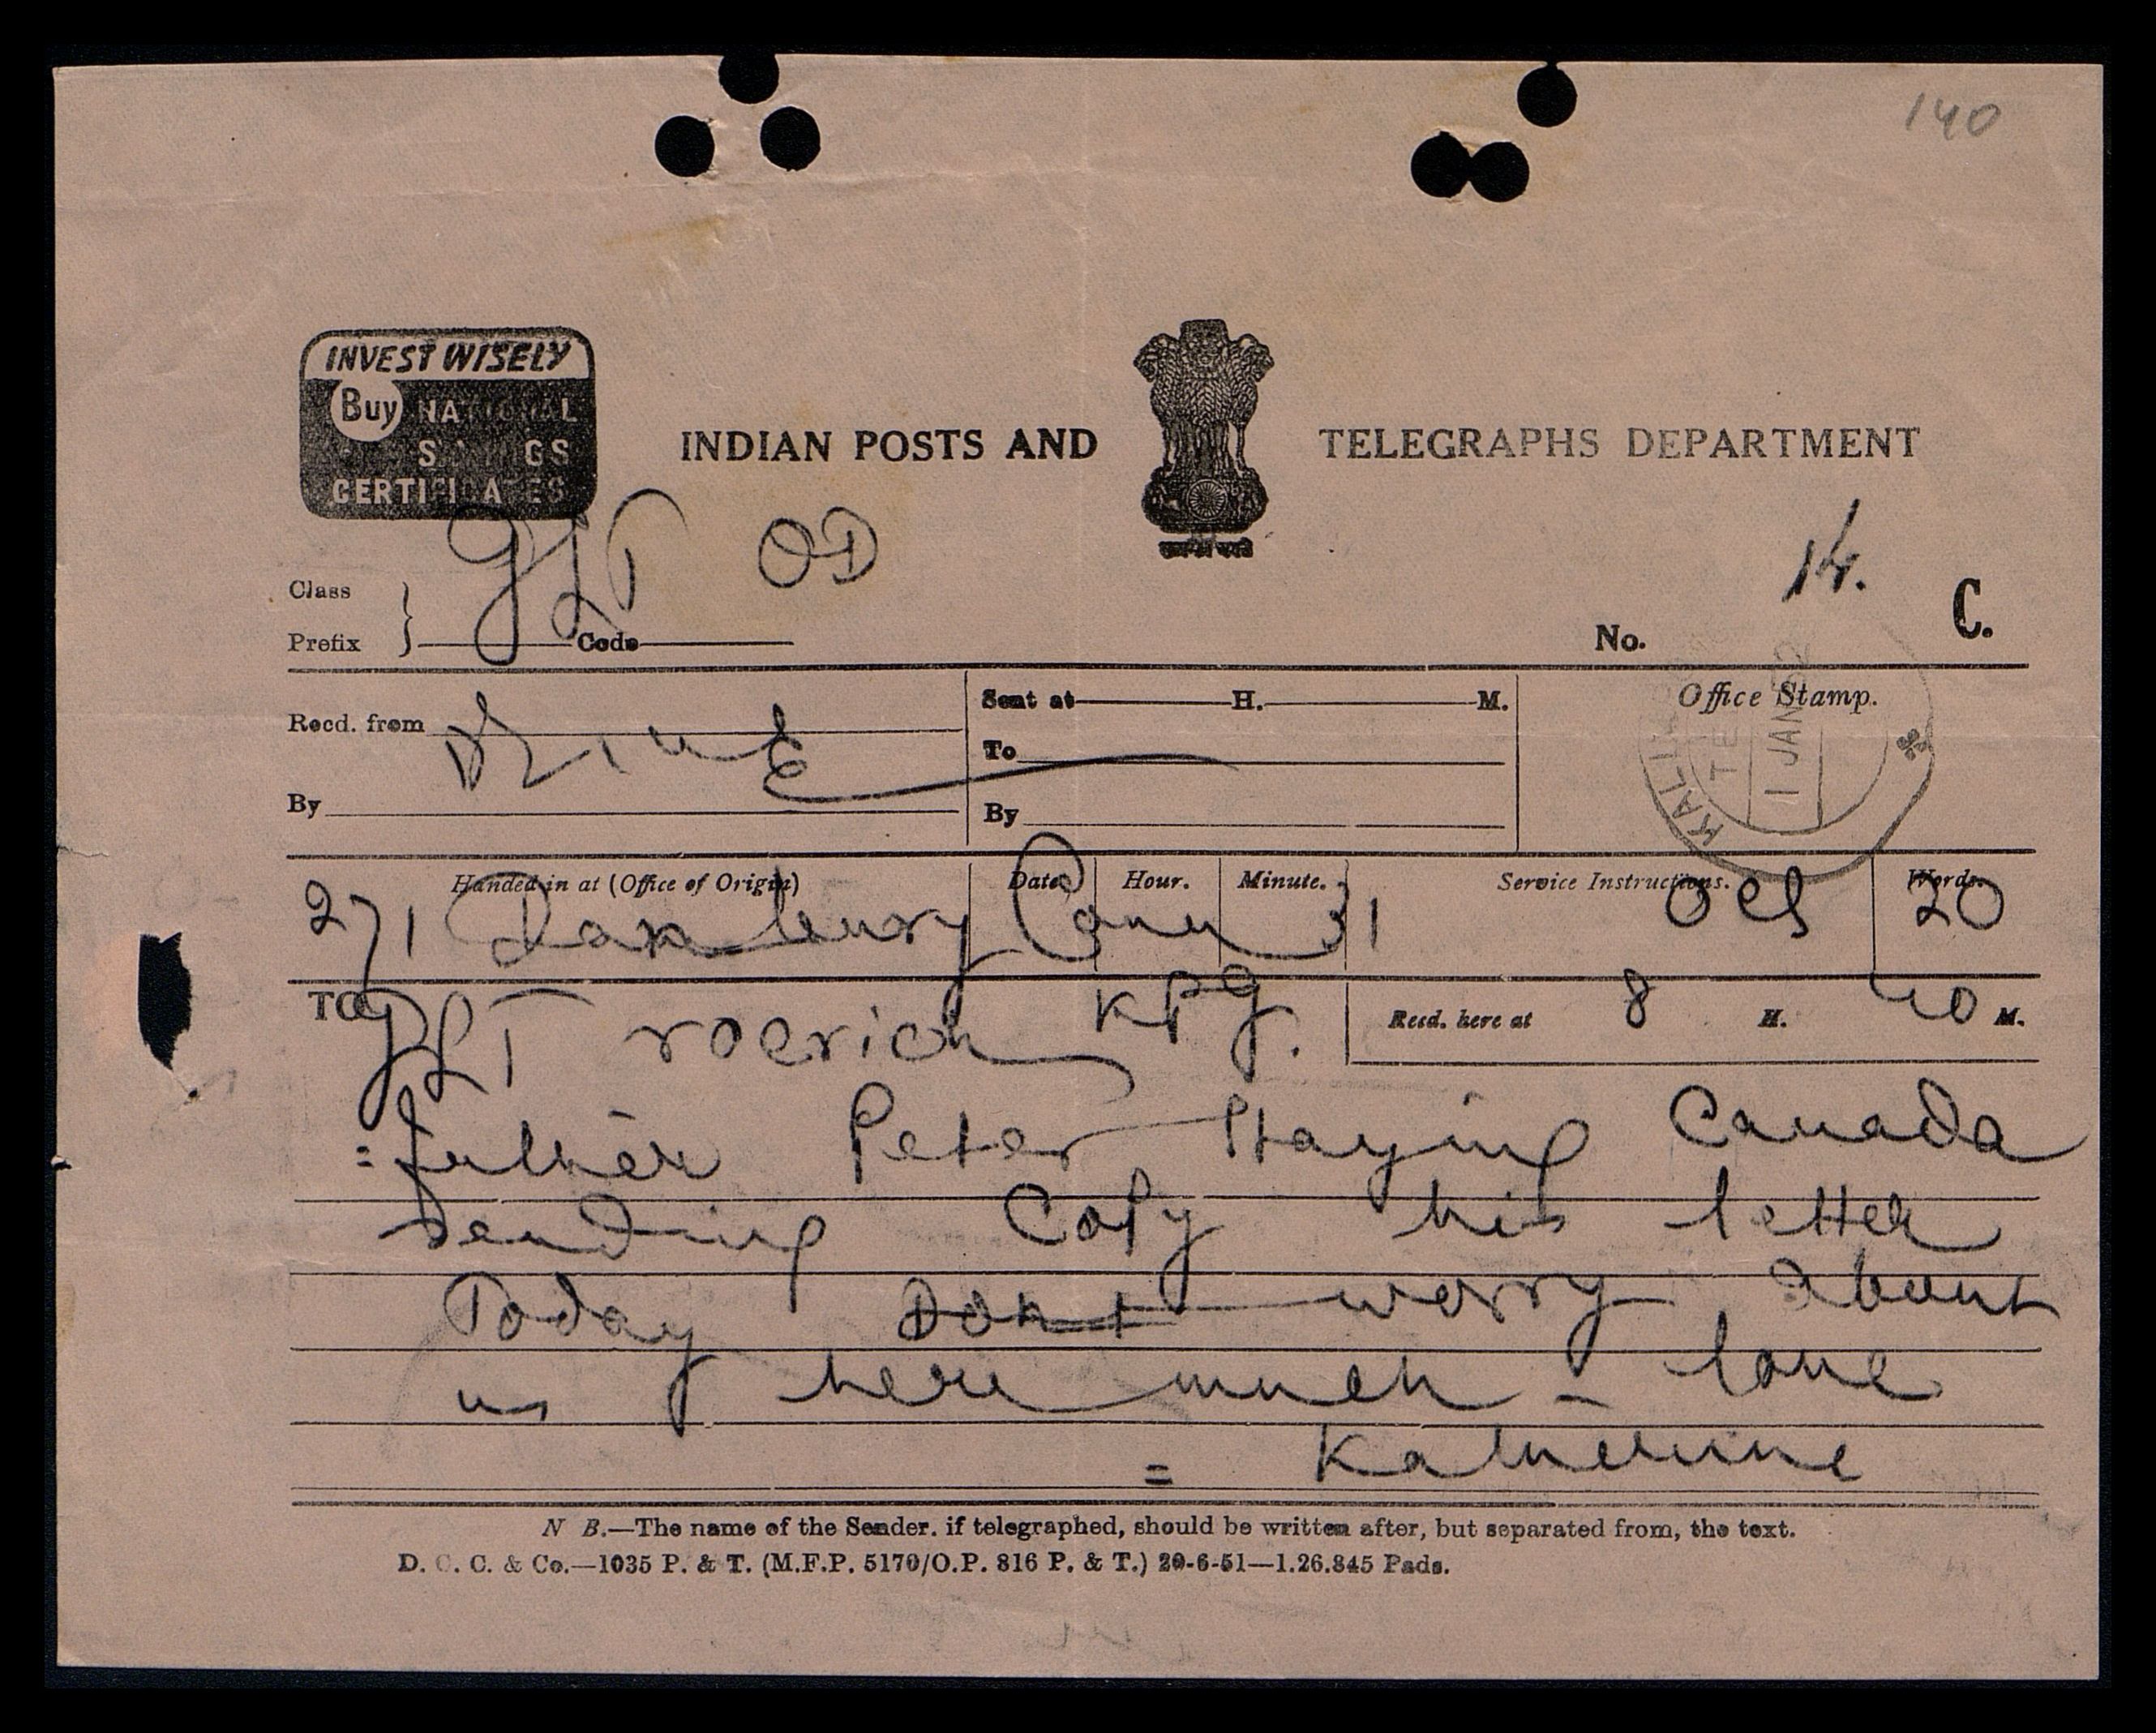 140
INVEST WISELY
Buy NATIONAL
SAVINGS
CERTIFICATES
INDIAN POSTS AND TELEGRAPHS DEPARTMENT
GLT OD
14.
Class
Prefix } Code
No. C.
Recd. from
By
Sent at H. M.
To
By
Office Stamp.
1 JAN
Handed in at (Office of Origin) Date. Hour. Minute. Service Instructions. Words.
271 Danbury Conn 31 20
TO GLT roerich KPG.
Recd. here at 8 H. 40 M.
= father Peter Staying Canada
Sending Copy his letter
Today Dont worry about
us here much - love
= Katherine
N B.—The name of the Sender. if telegraphed, should be written after, but separated from, the text.
D. C. C. & Co.—1035 P. & T. (M.F.P. 5170/O.P. 816 P. & T.) 20-6-51—1.26.845 Pads.